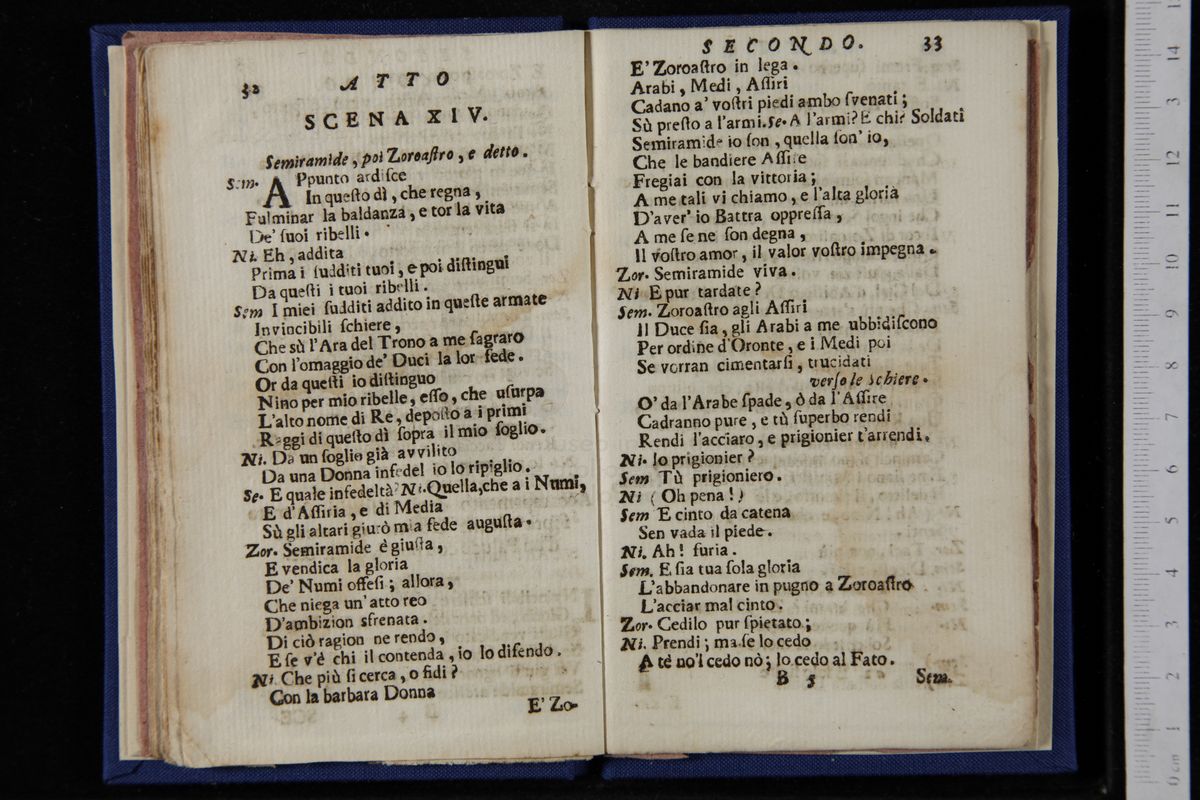 32 ATTO
SCENA XIV.
Semiramide, poi Zoroaſtro, e detto.
Sem. APpunto ardiſce
In queſto dì, che regna,
Fulminar la baldanza, e tor la vita
De' ſuoi ribelli.
Ni. Eh, addita
Prima i ſudditi tuoi, e poi diſtingui
Da queſti i tuoi ribelli.
Sem I miei ſudditi addito in queſte armate
Invincibili ſchiere,
Che sù l'Ara del Trono a me ſagraro
Con l'omaggio de' Duci la lor fede.
Or da queſti io diſtinguo
Nino per mio ribelle, eſſo, che uſurpa
L'alto nome di Re, depoſto a i primi
Raggi di queſto dì ſopra il mio ſoglio.
Ni. Da un ſoglio già avvilito
Da una Donna infedel io lo ripiglio.
Se. E quale infedeltà? Ni. Quella, che a i Numi,
E d'Aſſiria, e di Media
Sù gli altari giurò mia fede auguſta.
Zor. Semiramide è giuſta,
E vendica la gloria
De' Numi offeſi; allora,
Che niega un' atto reo
D'ambizion sfrenata.
Di ciò ragion ne rendo,
E ſe v'è chi il contenda, io lo difendo.
Ni. Che più ſi cerca, o fidi?
Con la barbara Donna
E' Zo-
SECONDO. 33
E' Zoroaſtro in lega.
Arabi, Medi, Aſſiri
Cadano a' voſtri piedi ambo ſvenati;
Sù preſto a l'armi. Se. A l'armi? E chi? Soldati
Semiramide io ſon, quella ſon' io,
Che le bandiere Aſſire
Fregiai con la vittoria;
A me tali vi chiamo, e l'alta gloria
D'aver' io Battra oppreſſa,
A me ſe ne ſon degna,
Il voſtro amor, il valor voſtro impegna.
Zor. Semiramide viva.
Ni E pur tardate?
Sem. Zoroaſtro agli Aſſiri
Il Duce ſia, gli Arabi a me ubbidiſcono
Per ordine d'Oronte, e i Medi poi
Se vorran cimentarſi, trucidati
verſo le Schiere.
O' da l'Arabe ſpade, ò da l'Aſſire
Cadranno pure, e tù ſuperbo rendi
Rendi l'acciaro, e prigionier t'arrendi.
Ni. Io prigionier?
Sem Tù prigioniero.
Ni (Oh pena!)
Sem E cinto da catena
Sen vada il piede.
Ni. Ah! furia.
Sem. E ſia tua ſola gloria
L'abbandonare in pugno a Zoroaſtro
L'acciar mal cinto.
Zor. Cedilo pur ſpietato;
Ni. Prendi; ma ſe lo cedo
A te no'l cedo nò; lo cedo al Fato.
B 5 Sem.